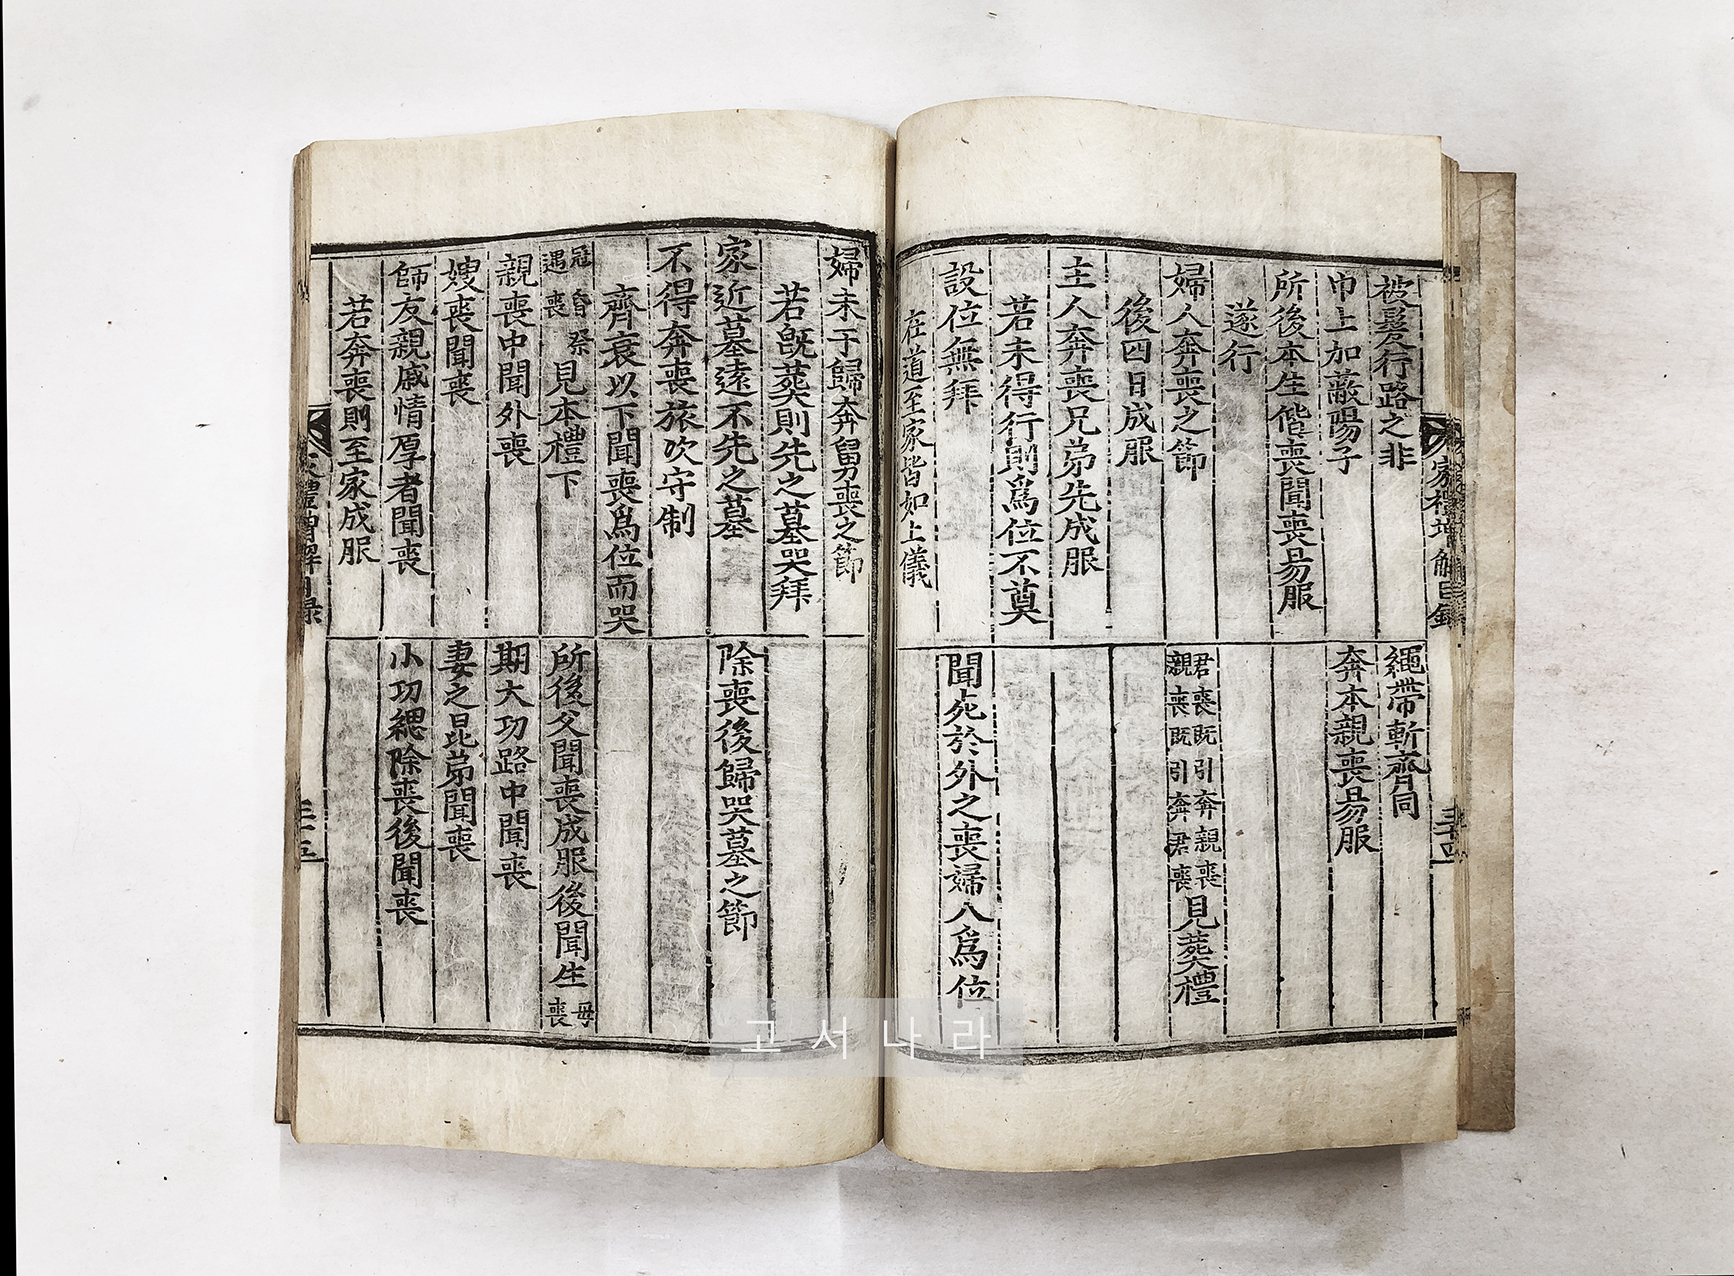 家禮增解目錄
三十四
被髮行路之非
繩帶斬齊同
巾上加蔽陽子
奔本親喪易服
所後本生偕喪聞喪易服
遂行
婦人奔喪之節
君喪既引奔親喪
親喪既引奔君喪
見葬禮
後四日成服
主人奔喪兄弟先成服
若未得行則爲位不奠
設位無拜
聞死於外之喪婦人爲位
在道至家皆如上儀
婦未于歸奔舅喪之節
若旣葬則先之墓哭拜
家近墓遠不先之墓
除喪後歸哭墓之節
不得奔喪旅次守制
齊衰以下聞喪爲位而哭
冠昏祭
遇喪
見本禮下
所後父聞喪成服後聞生母喪
親喪中聞外喪
期大功路中聞喪
嫂喪聞喪
妻之昆弟聞喪
師友親戚情厚者聞喪
小功緦除喪後聞喪
若奔喪則至家成服
禮增解目錄
三十五
고서나라